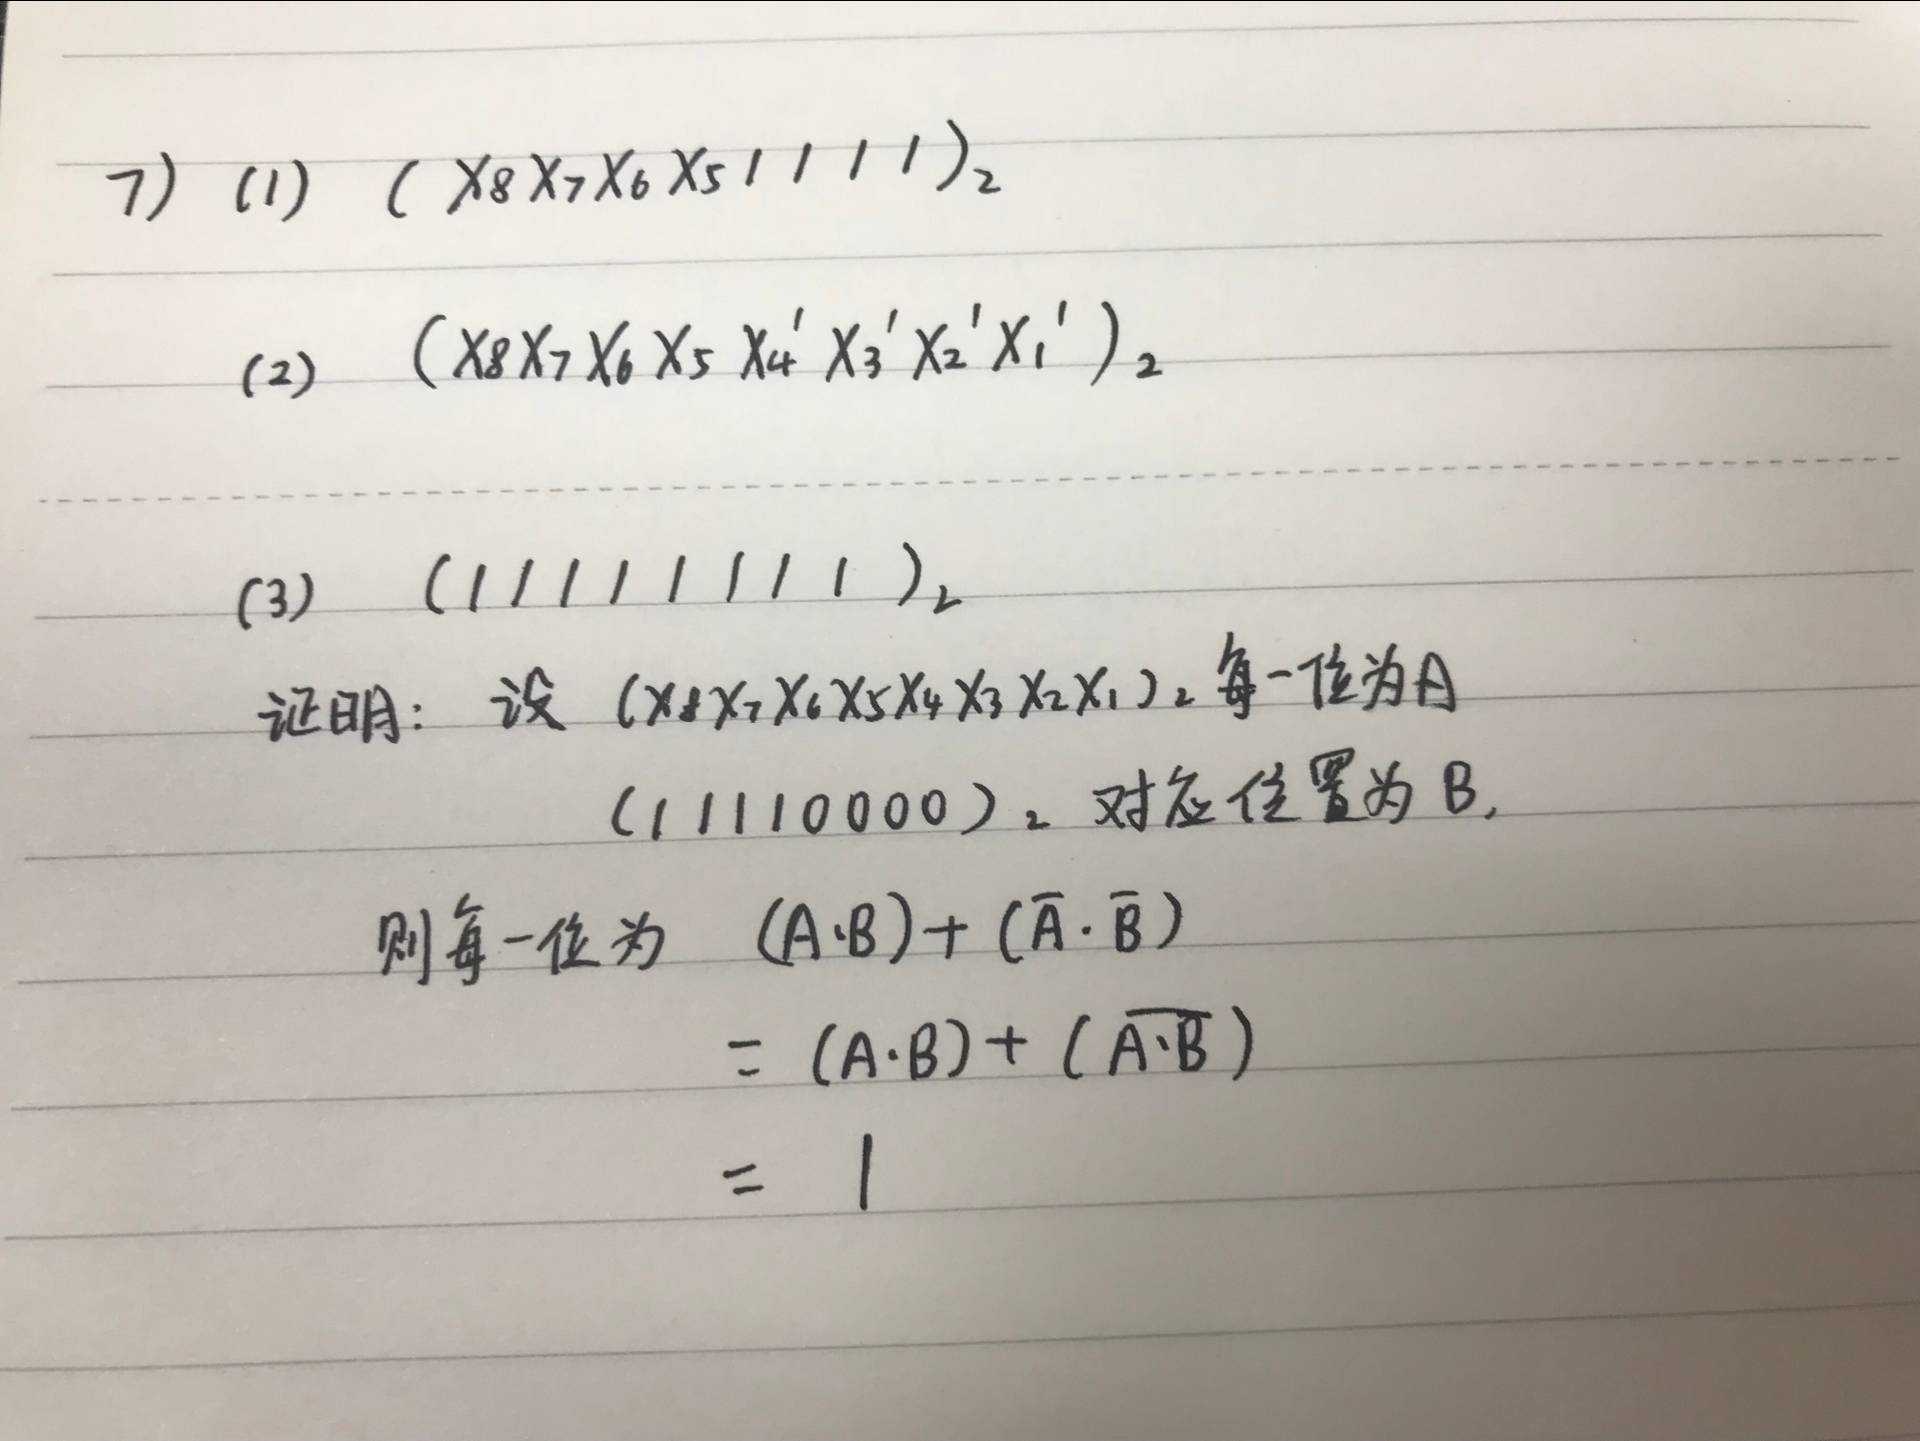 7) (1) (X8X7X6X51111)₂
(2) (X8X7X6X5X4'X3'X2'X1')₂
(3) (11111111)₂
证明: 设 (X8X7X6X5X4X3X2X1)₂每一位为A
(11110000)₂对应位置为B,
则每一位为 (A·B)+(A̅·B̅)
=(A·B)+(A̅·̅B̅)
= 1